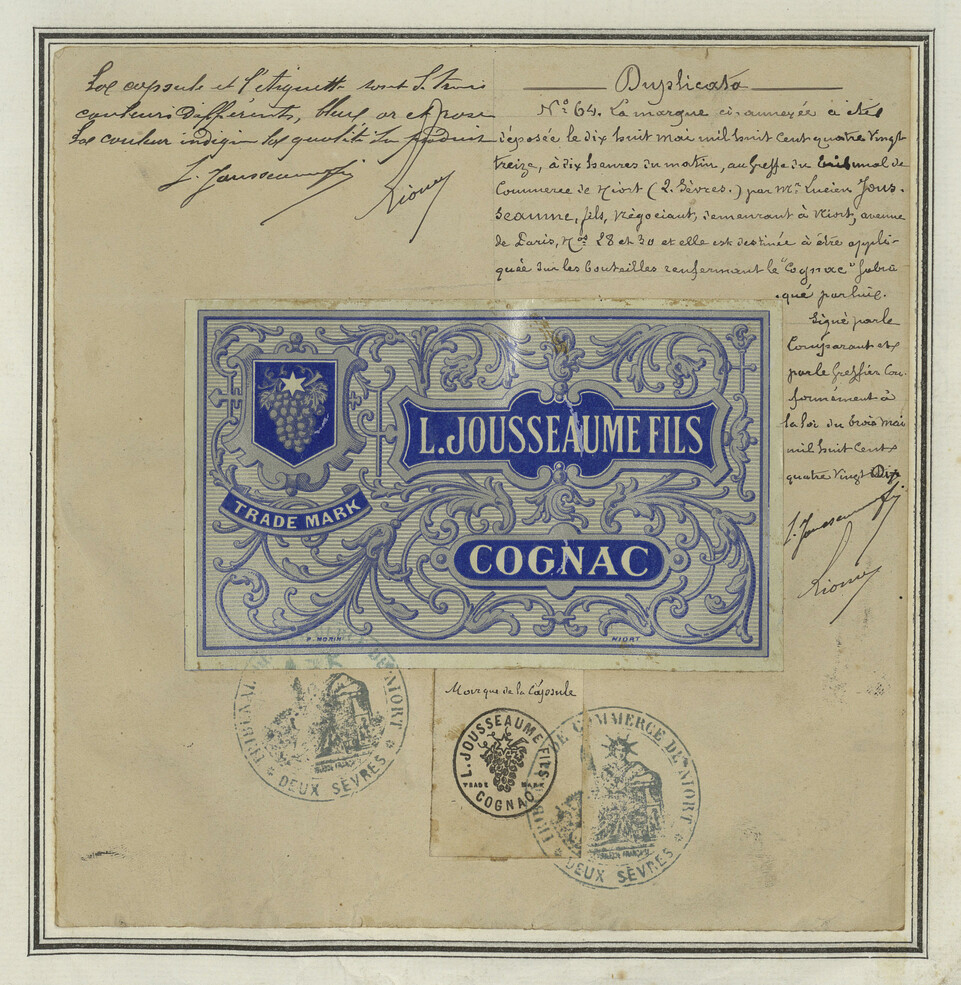 La capsule et l'Etiquette sont de trois
couleurs différents, bleue or et rose
La couleur indique la qualité du produit
L. Jousseaume fils
Duplicata
N° 64. La marque ci-annexée a été
déposée le dix huit mai mil huit cent quatre vingt
treize, à dix heures du matin, au Greffe du Tribunal de
Commerce de Niort (2. Sèvres.) par Mr Lucien Jous-
seaume, fils, négociant, demeurant à Niort, avenue
de Paris, Nos 28 et 30 et elle est destinée à être appli-
quée sur les bouteilles renfermant le "Cognac" fabri
qué par lui.
Signé par le
Comparant et
par le Greffier con-
formément à
la loi du trois mai
mil huit cent
quatre vingt dix
L. Jousseaume fils
L. JOUSSEAUME FILS
TRADE MARK
COGNAC
P. MORIN
NIORT
Marque de la Capsule
L. JOUSSEAUME FILS
TRADE MARK
COGNAC
TRIBUNAL DE NIORT
DEUX SÈVRES
TRIB DE COMMERCE DE NIORT
DEUX SÈVRES